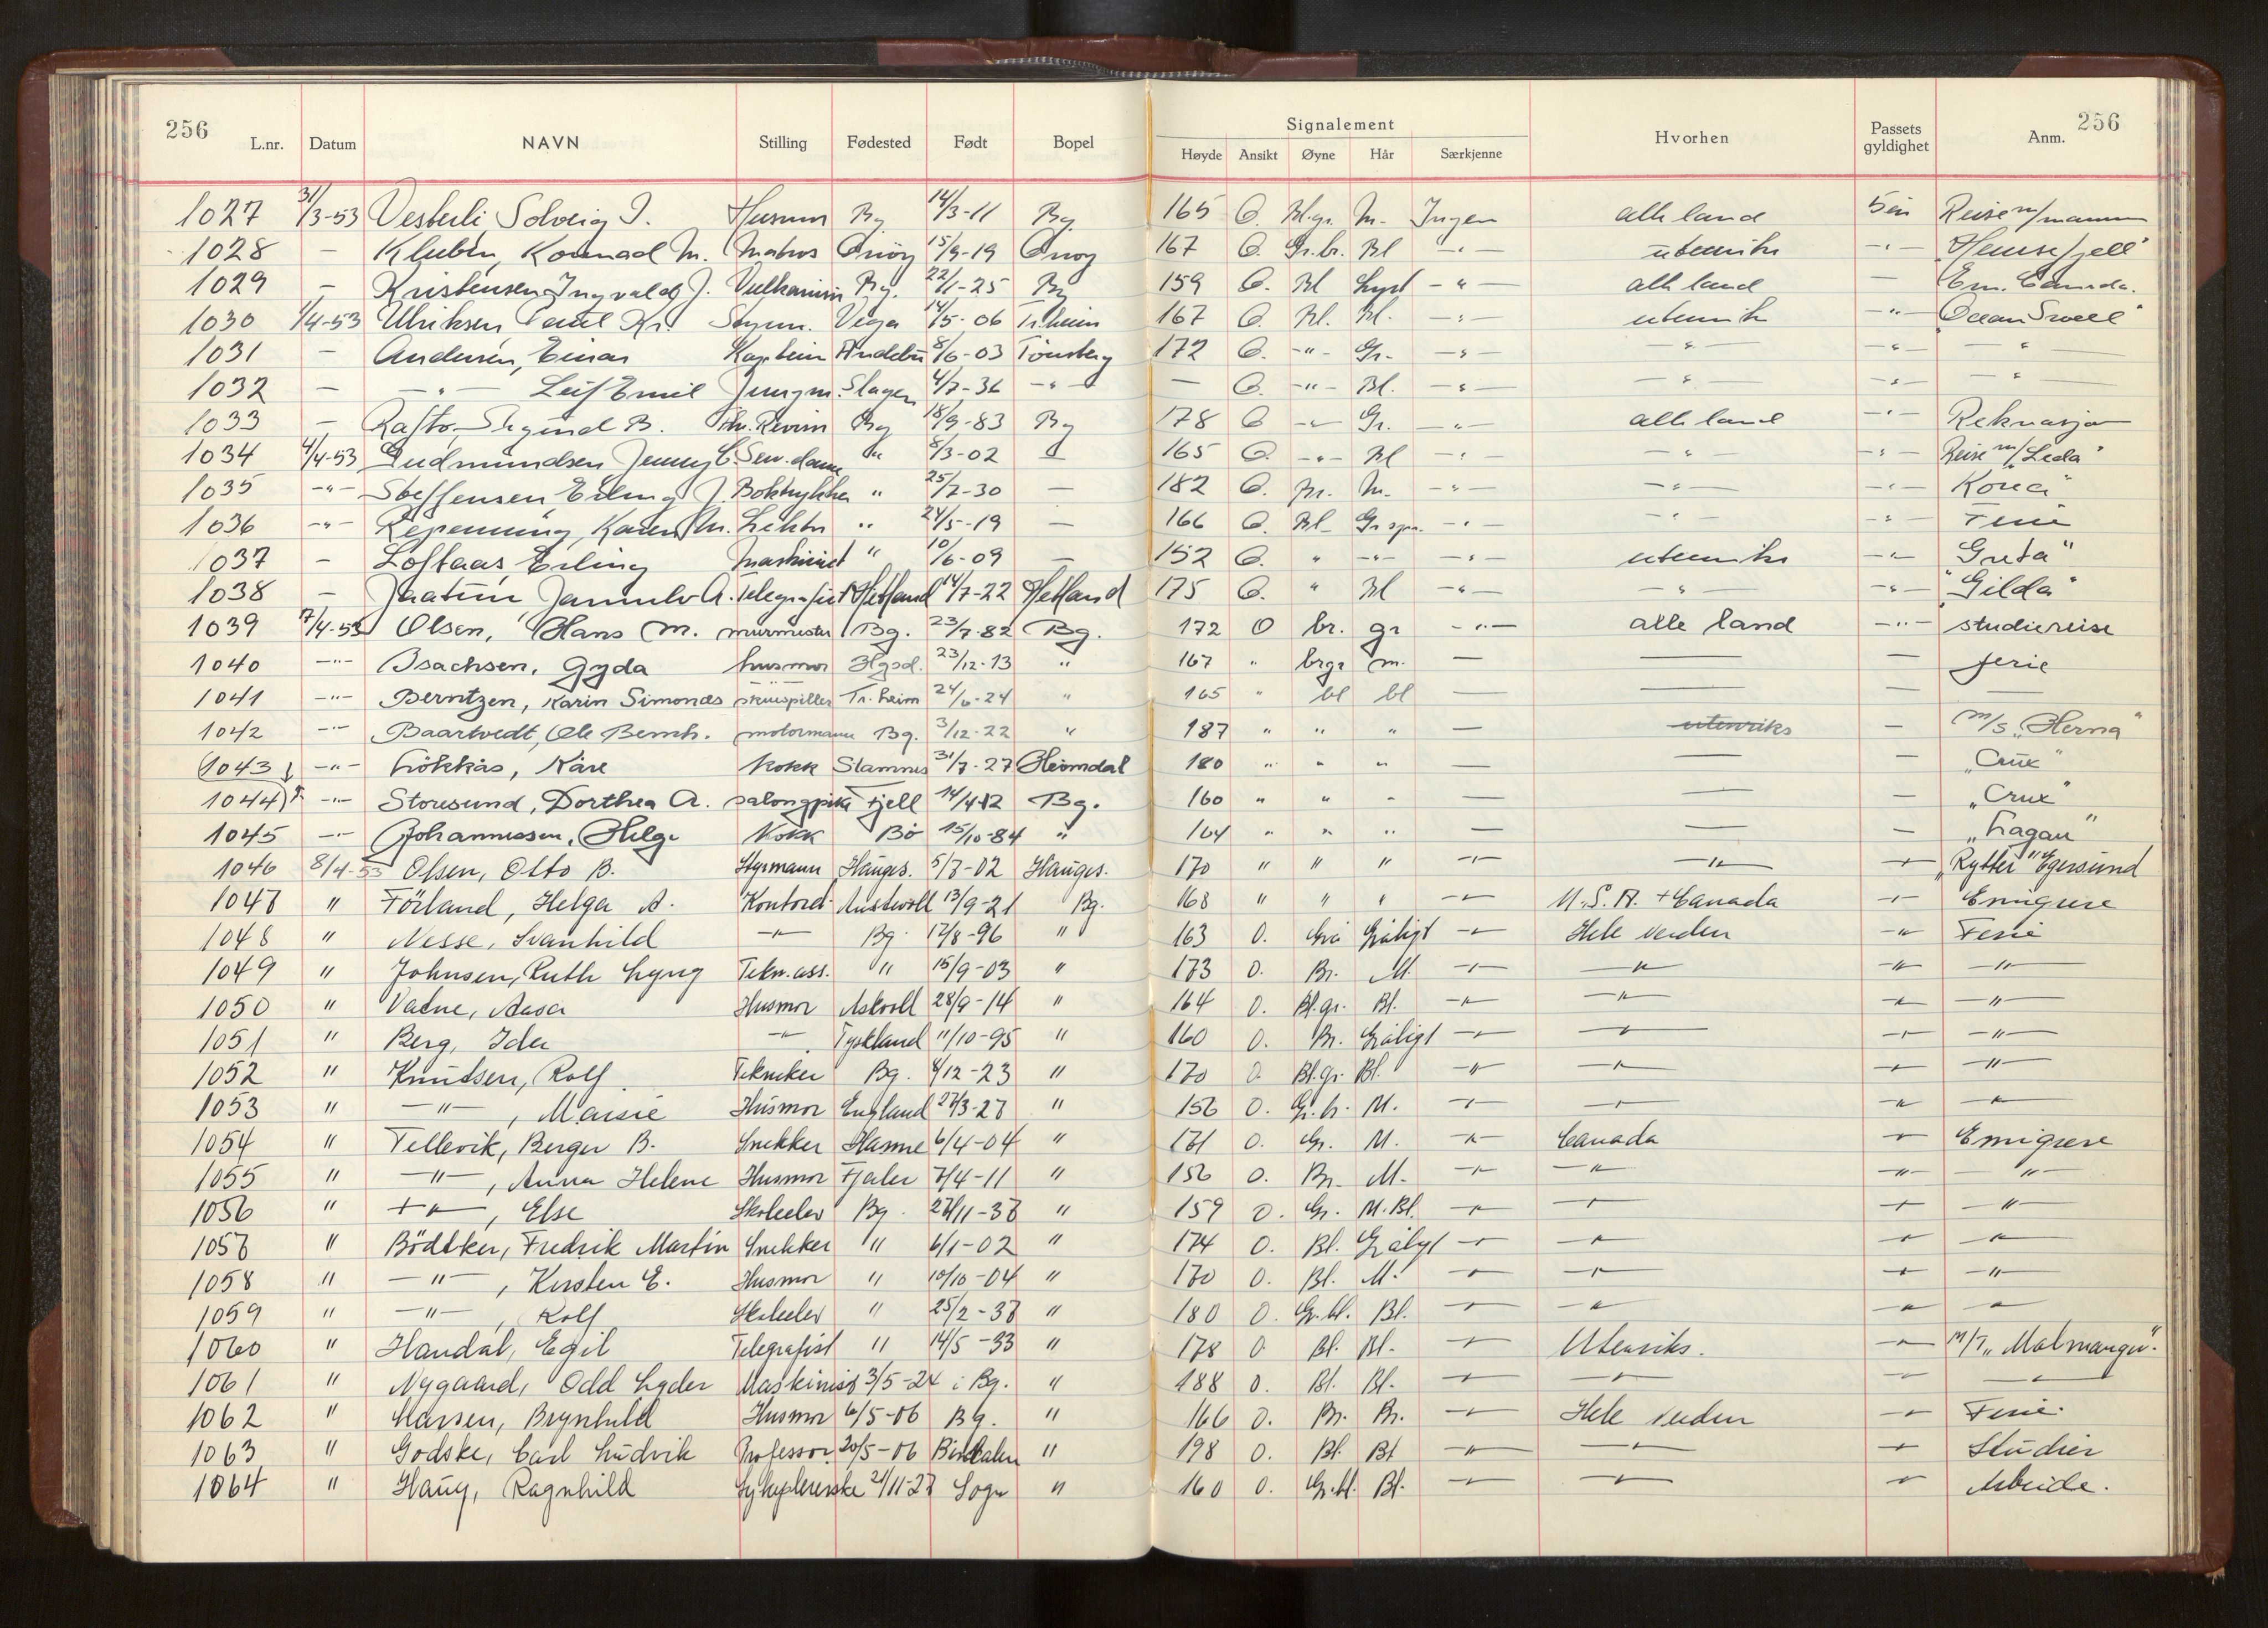 256 256
L.nr. Datum NAVN Stilling Fødested Født Bopel Signalement Hvorhen Passets gyldighet Anm.
Høyde Ansikt Øyne Hår Særkjenne
1027 31/3-53 Vesterli Solveig J. Husmor Bg 14/3-11 Bg. 165 O. Bl.gr. M- Ingen alle land 5 år Reise m/mannen
1028 — Kluben, Konrad M. Matros 15/9-19 167 O. Gr.br. Bl -"- utenriks -"-
1029 — Kristensen Ingvald J. Bg. 22/1-25 Bg 159 O. Bl Lyst -"- alle land — Em. Canada.
1030 1/4-53 Ulriksen, Paul Kr. Styrm. Vega 14/5-06 Tr.heim 167 O. Bl. Bl. -"- utenrik -"- "Ocean Swell"
1031 — Andersen, Einar Kaptein Andebu 8/6-03 Tönsberg 172 O. -"- Gr- -"- -"- -"- -"-
1032 — -"- Leif Emil Jungm. Slagen 4/7-36 -"- — O. -"- Bl. -"- -"- -"- -"-
1033 — B. Bg 18/9-83 Bg 178 O -"- Gr. -"- alle land -"-
1034 4/4-53 Gudmundsen Jenny C. Serv.dame " 8/3-02 — 165 O. -"- Bl -"- -"- -"- Reise m/"Leda"
1035 -"- Steffensen Erling J. Boktrykker " 25/7-30 — 182 O. Br. M. -"- -"- -"- "Korea"
1036 -"- Repenning, Karen M. Lektor " 24/5-19 — 166 O. Bl- -"- -"- -"- Ferie
1037 — Loftaas Erling Maskinist " 10/6-09 — 152 O. " -"- -"- utenriks -"- "Greta"
1038 — Jaatun A. Telegrafist Hetland 14/7-22 Hetland 175 O. " Bl -"- -"- -"- "Gilda"
1039 7/4-53 Olsen, Hans M. murmester Bg. 23/7-82 Bg. 172 O br. gr -"- alle land -"- studiereise
1040 -"- Isachsen, Gyda husmor Hgsd. 23/12-13 " 167 " brgr m. — — — ferie
1041 -"- Berntzen, Karin Simonds skuespiller Tr.heim 24/6-24 " 165 " bl bl — — — —
1042 -"- Baartvedt, Ole Bernh. motormann Bg. 3/12-22 " 187 " " " — utenriks — m/s "Herma"
1043 -"- Lökkås, Kåre Kokk Stamnes 31/7-27 Heimdal 180 " " " — — — "Crux"
1044 -"- Storesund, Dorthea A. salongpike Fjell 14/4-12 Bg. 160 " " " — — — "Crux"
1045 -"- Johannessen, Helge Kokk Bö 15/10-84 " 164 " " " — — — "Lagan"
1046 8/4-53 Olsen, Otto B. Styrmann Hauges. 5/7-02 Hauges. 170 " " " -"- -"- -"- "Rytter" Egersund
1047 " Förland, Helga A. Kontord. Austevoll 13/9-21 Bg. 168 " " " -"- U.S.A. + Canada -"- Emigrere
1048 " Nesse, Svanhild -"- Bg. 17/8-96 " 163 O. Grå Gråligt -"- Hele verden -"- Ferie
1049 " Johnsen, Ruth Lyng Tekn.ass. " 15/9-03 " 173 O. Br. M. -"- -"- -"- -"-
1050 " Vadne, Aasa Husmor Askvoll 28/9-14 " 164 O. Bl.gr. Bl. -"- -"- -"- -"-
1051 " Berg, Ida -"- Tyskland 11/10-95 " 160 O. Br. Gråligt -"- -"- -"- -"-
1052 " Knudsen, Rolf Tekniker Bg. 4/12-23 " 170 O Bl.gr. Bl. -"- -"- -"- -"-
1053 " -"-, Maisie Husmor England 27/3-27 " 156 O. Gr.br. M. -"- -"- -"- -"-
1054 " Tellevik, Berger B. Snekker Hamre 6/4-04 " 171 O. Gr. M. -"- Canada -"- Emigrere
1055 " -"-, Anna Helene Husmor Fjaler 7/4-11 " 156 O. Br. M. -"- -"- -"- -"-
1056 " -"-, Else Skoleelev Bg. 27/11-37 " 159 O. Gr. M.Bl. -"- -"- -"- -"-
1057 " Bödtker, Fredrik Martin Snekker " 6/1-02 " 174 O. Bl. Gråligt -"- -"- -"- -"-
1058 " -"-, Kirsten E. Husmor " 10/10-04 " 170 O. Bl. M. -"- -"- -"- -"-
1059 " -"-, Rolf Skoleelev " 25/2-37 " 180 O. Gr.bl. Bl. -"- -"- -"- -"-
1060 " Handal, Egil Telegrafist " 14/5-33 " 178 O Bl. Bl. -"- Utenriks. -"- M/T "Malmanger".
1061 " Nygaard, Odd Lyder Maskinist 3/5-24 i Bg. " 188 O. Bl. Bl. -"- -"- -"- -"-
1062 " Larsen, Brynhild Husmor 6/5-06 Bg. " 166 O. Br. Br. -"- Hele verden -"- Ferie.
1063 " Godske, Carl Ludvik Professor 20/5-06 " 198 O. Bl. Bl -"- -"- -"- Studier
1064 " Haug, Ragnhild Sykepleierske 21/11-27 Sogn " 160 O. Gr.bl. Bl. -"- -"- -"- Arbeide.